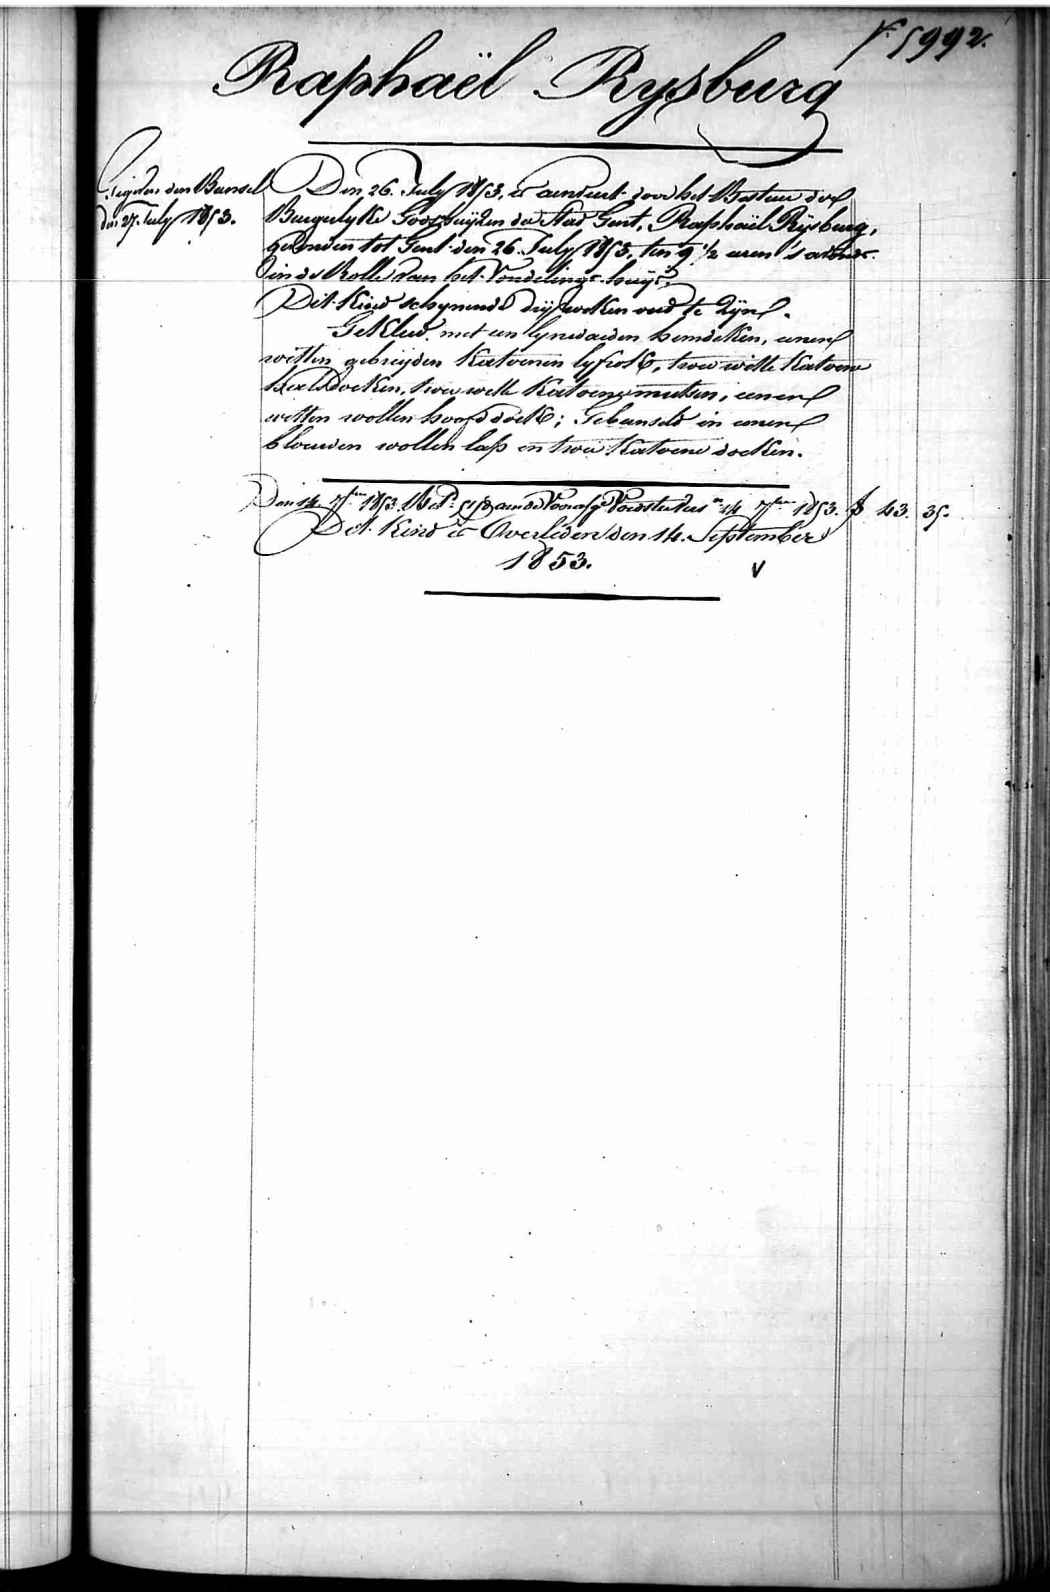 F. 5992.
Raphaël Rysburg
den Bussel
den 27 July 1853.
Den 26. July 1853, is aenveert door het Bestuur der
Burgerlyke Godshuijzen der Stad Gent, Raphaël Rysburg,
gevonden tot Gent den 26. July 1853, ten 9 1/2 uren 's avonds
in de Rolle van het Vondelings-huijs.
Dit Kind schynende dry weken oud te zyn.
Gekleed met een lynwaeden hemdeken, eenen
witten gebreyden Katoenen lyfrok, twee witte Katoene
halsdoeken, twee witte Katoene mutsen, eenen
witten wollen hoofddoek; Gebunseld in eenen
blauwen wollen lap en twee Katoene doeken.
Den 14 7ber 1853 aan de 14 7ber 1853. fr 43. 35.
Dit Kind is Overleden den 14. September
1853.